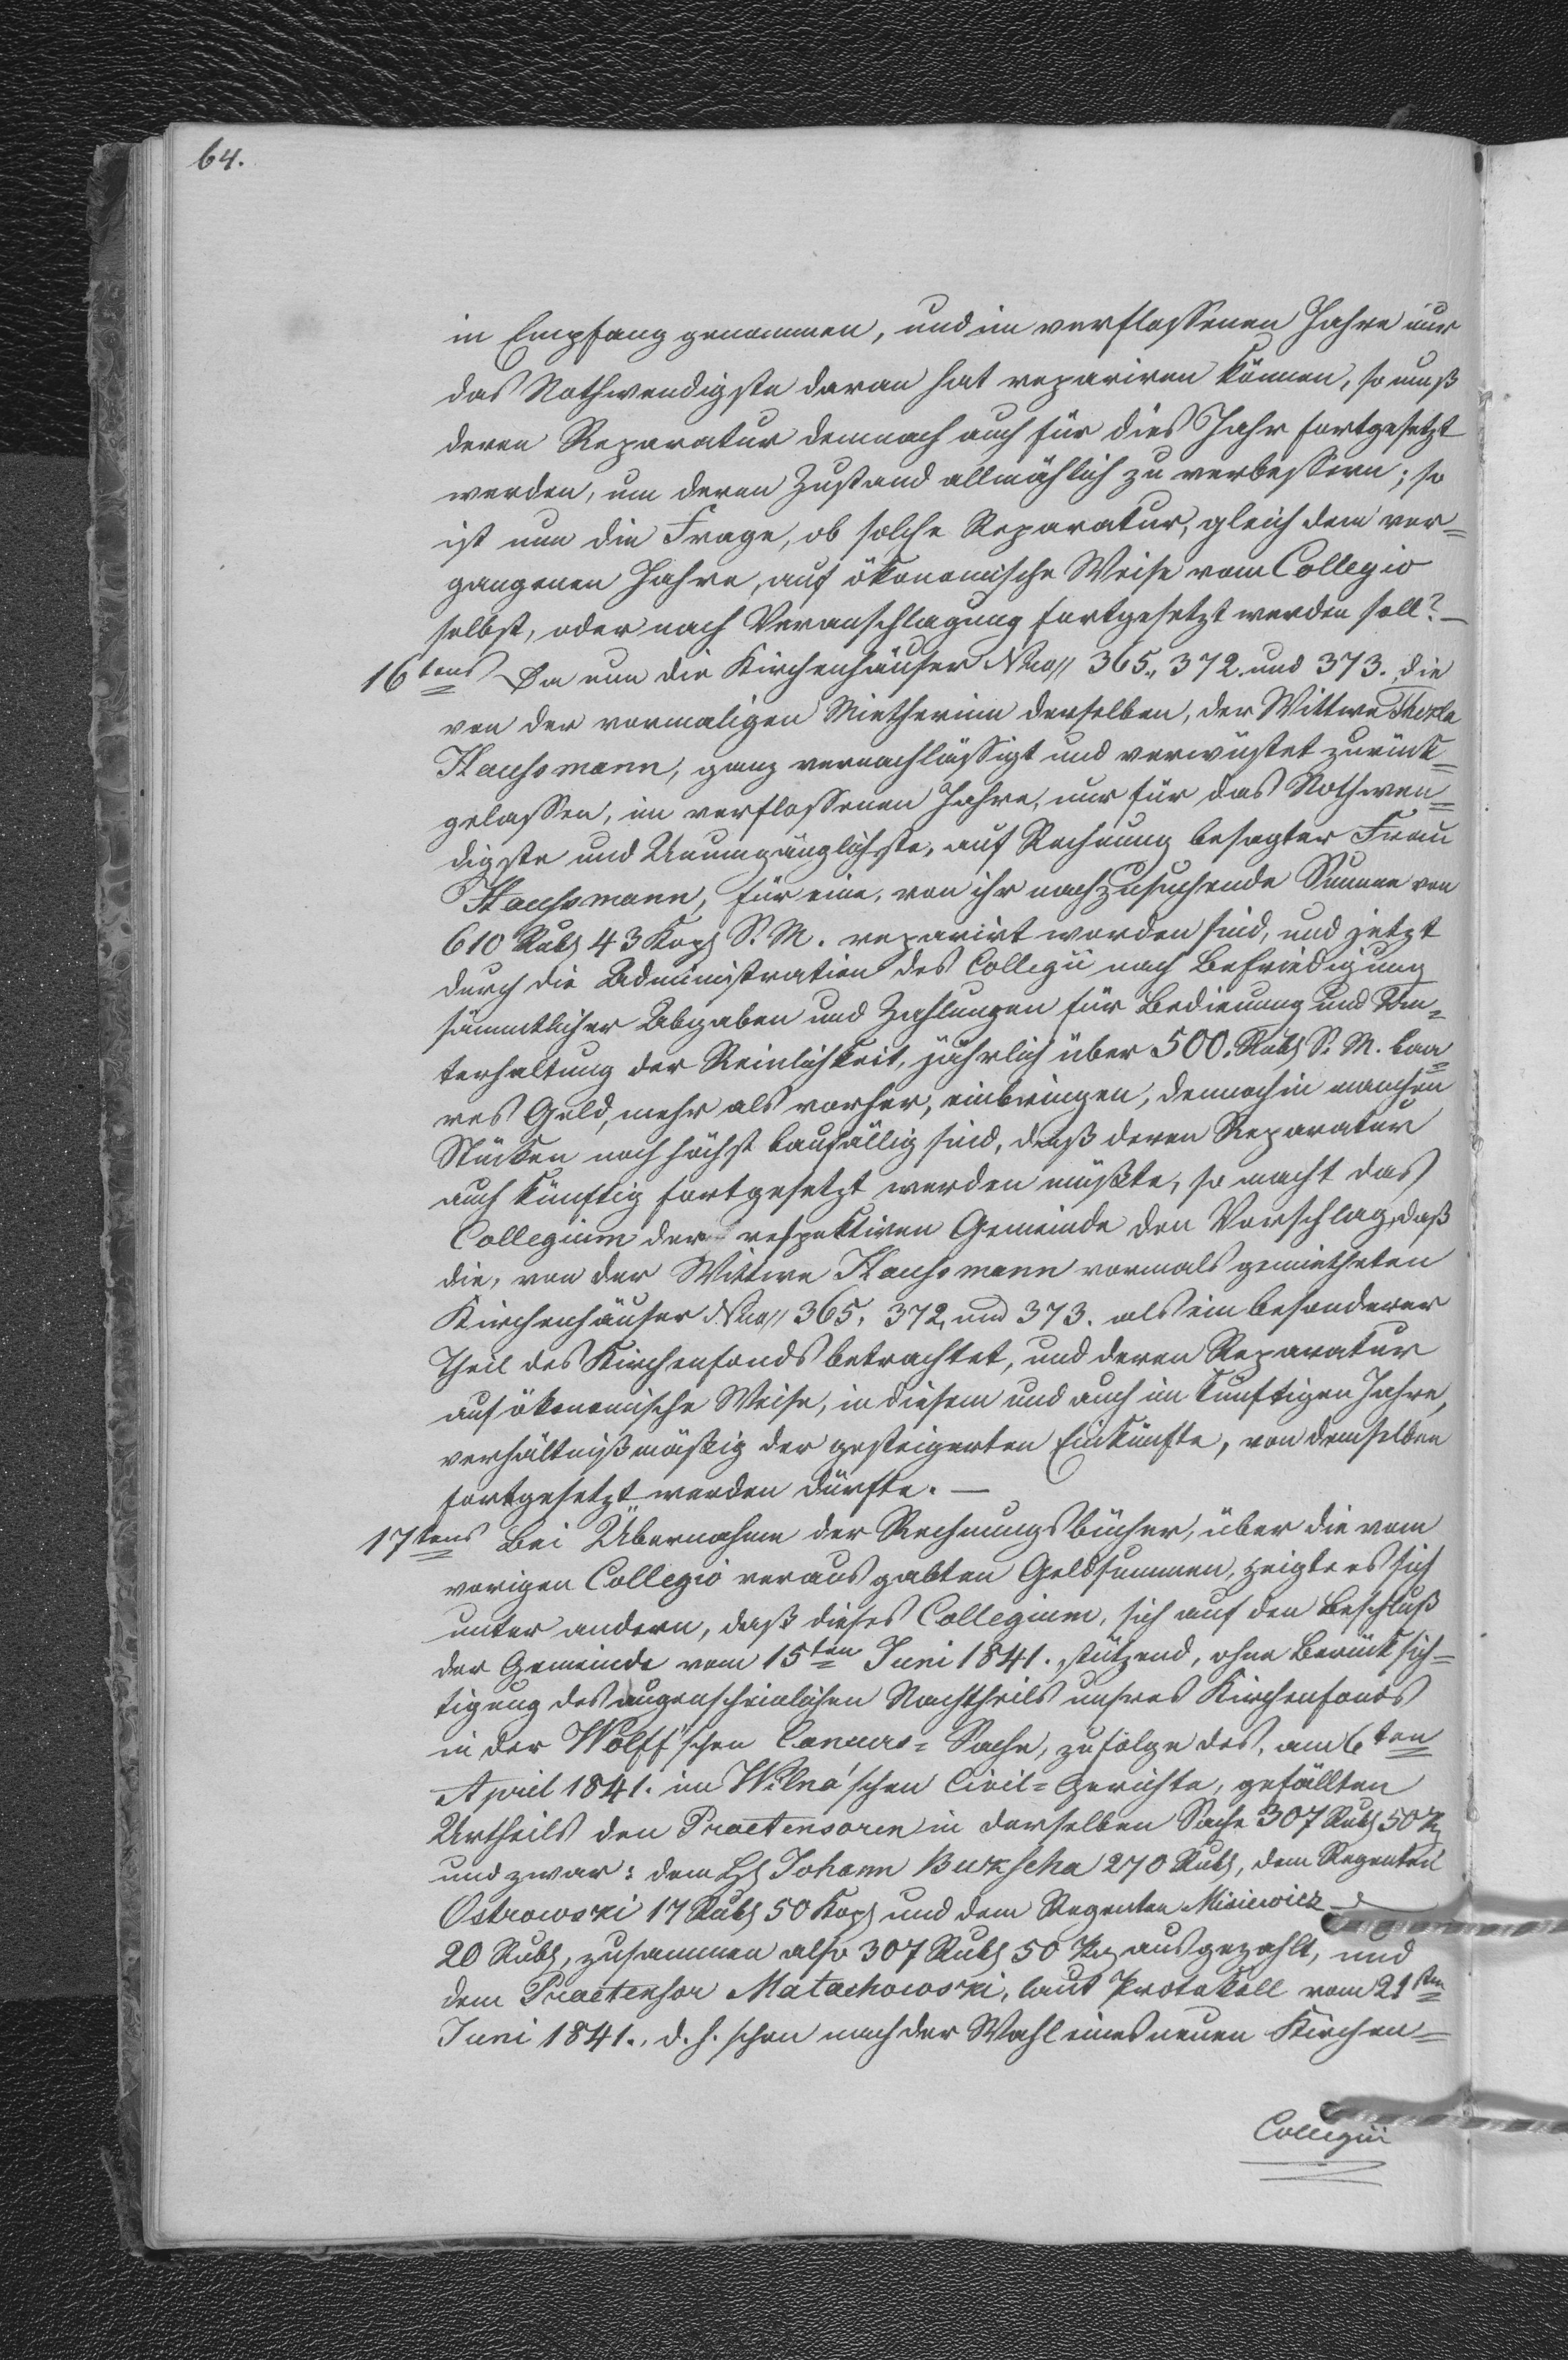 64.
in Empfang genommen, und im verflossenen Jahre nur
das Nothwendigste daran hat repariren können, so muß
deren Reparatur demnach auch für dies Jahr fortgesetzt
werden, um deren Zustand allmählich zu verbessern; so
ist nun die Frage, ob solche Reparatur, gleich dem ver=
gangenen Jahre, auf ökonomische Weise vom Collegio
selbst, oder nach Veranschlagung fortgesetzt werden soll? —
16tens Da nun die Kirchenhäuser Nro// 365., 372. und 373. die
von der vormaligen Mietherinn derselben, der Wittwe Thekla
Haussmann, ganz vernachlässigt und verwüstet zurück=
gelassen, im verflossenen Jahre, nur für das Nothwen=
digste und Unumgänglichste, auf Rechnung besagter Frau
Haussmann, für eine, von ihr nachzusuchende Summe von
610 Rub 43 Kop S. M. reparirt worden sind, und jetzt
durch die Administration des Collegii nach Befriedigung
sämmtlicher Abgaben und Zahlungen für Bedienung und Un=
terhaltung der Reinlichkeit, jährlich über 500. Rub S. M. baa=
res Geld, mehr als vorher, einbringen, dennoch in manchen
Stücken noch höchst baufällig sind, daß deren Reparatur
auch künftig fortgesetzt werden müßte, so macht das
Collegium der respektiven Gemeinde den Vorschlag, daß
die, von der Wittwe Haussmann vormals gemietheten
Kirchenhäuser Nro// 365, 372, und 373. als ein besonderer
Theil des Kirchenfonds betrachtet, und deren Reparatur
auf ökonomische Weise, in diesem und auch im künftigen Jahre,
verhältnißmäßig der gesteigerten Einkünfte, von demselben
fortgesetzt werden dürfte. —
17tens Bei Übernahme der Rechnungsbücher, über die vom
vorigen Collegio verausgabten Geldsummen, zeigte es sich
unter andern, daß dieses Collegium, sich auf den Beschluß
der Gemeinde vom 15ten Juni 1841. stützend, ohne Berücksich=
tigung des augenscheinlichen Nachtheils unsres Kirchenfonds
in der Wolff'schen Concurs=Sache, zufolge des, am 6ten
April 1841. im Wilna'schen Civil=Gerichte, gefällten
Urtheils den Praetensoren in derselben Sache 307 Rub 50 K
und zwar: dem H Johann Bukscha 270 Rub, dem Regenten
Ostrowski 17 Rub 50 Kop und dem Regenten Misiewicz
20 Rub, zusammen also 307 Rub 50 K ausgezahlt, und
dem Praetensor Matachowski, laut Protokoll vom 21sten
Juni 1841., d. h. schon nach der Wahl eines neuen Kirchen=
Collegii